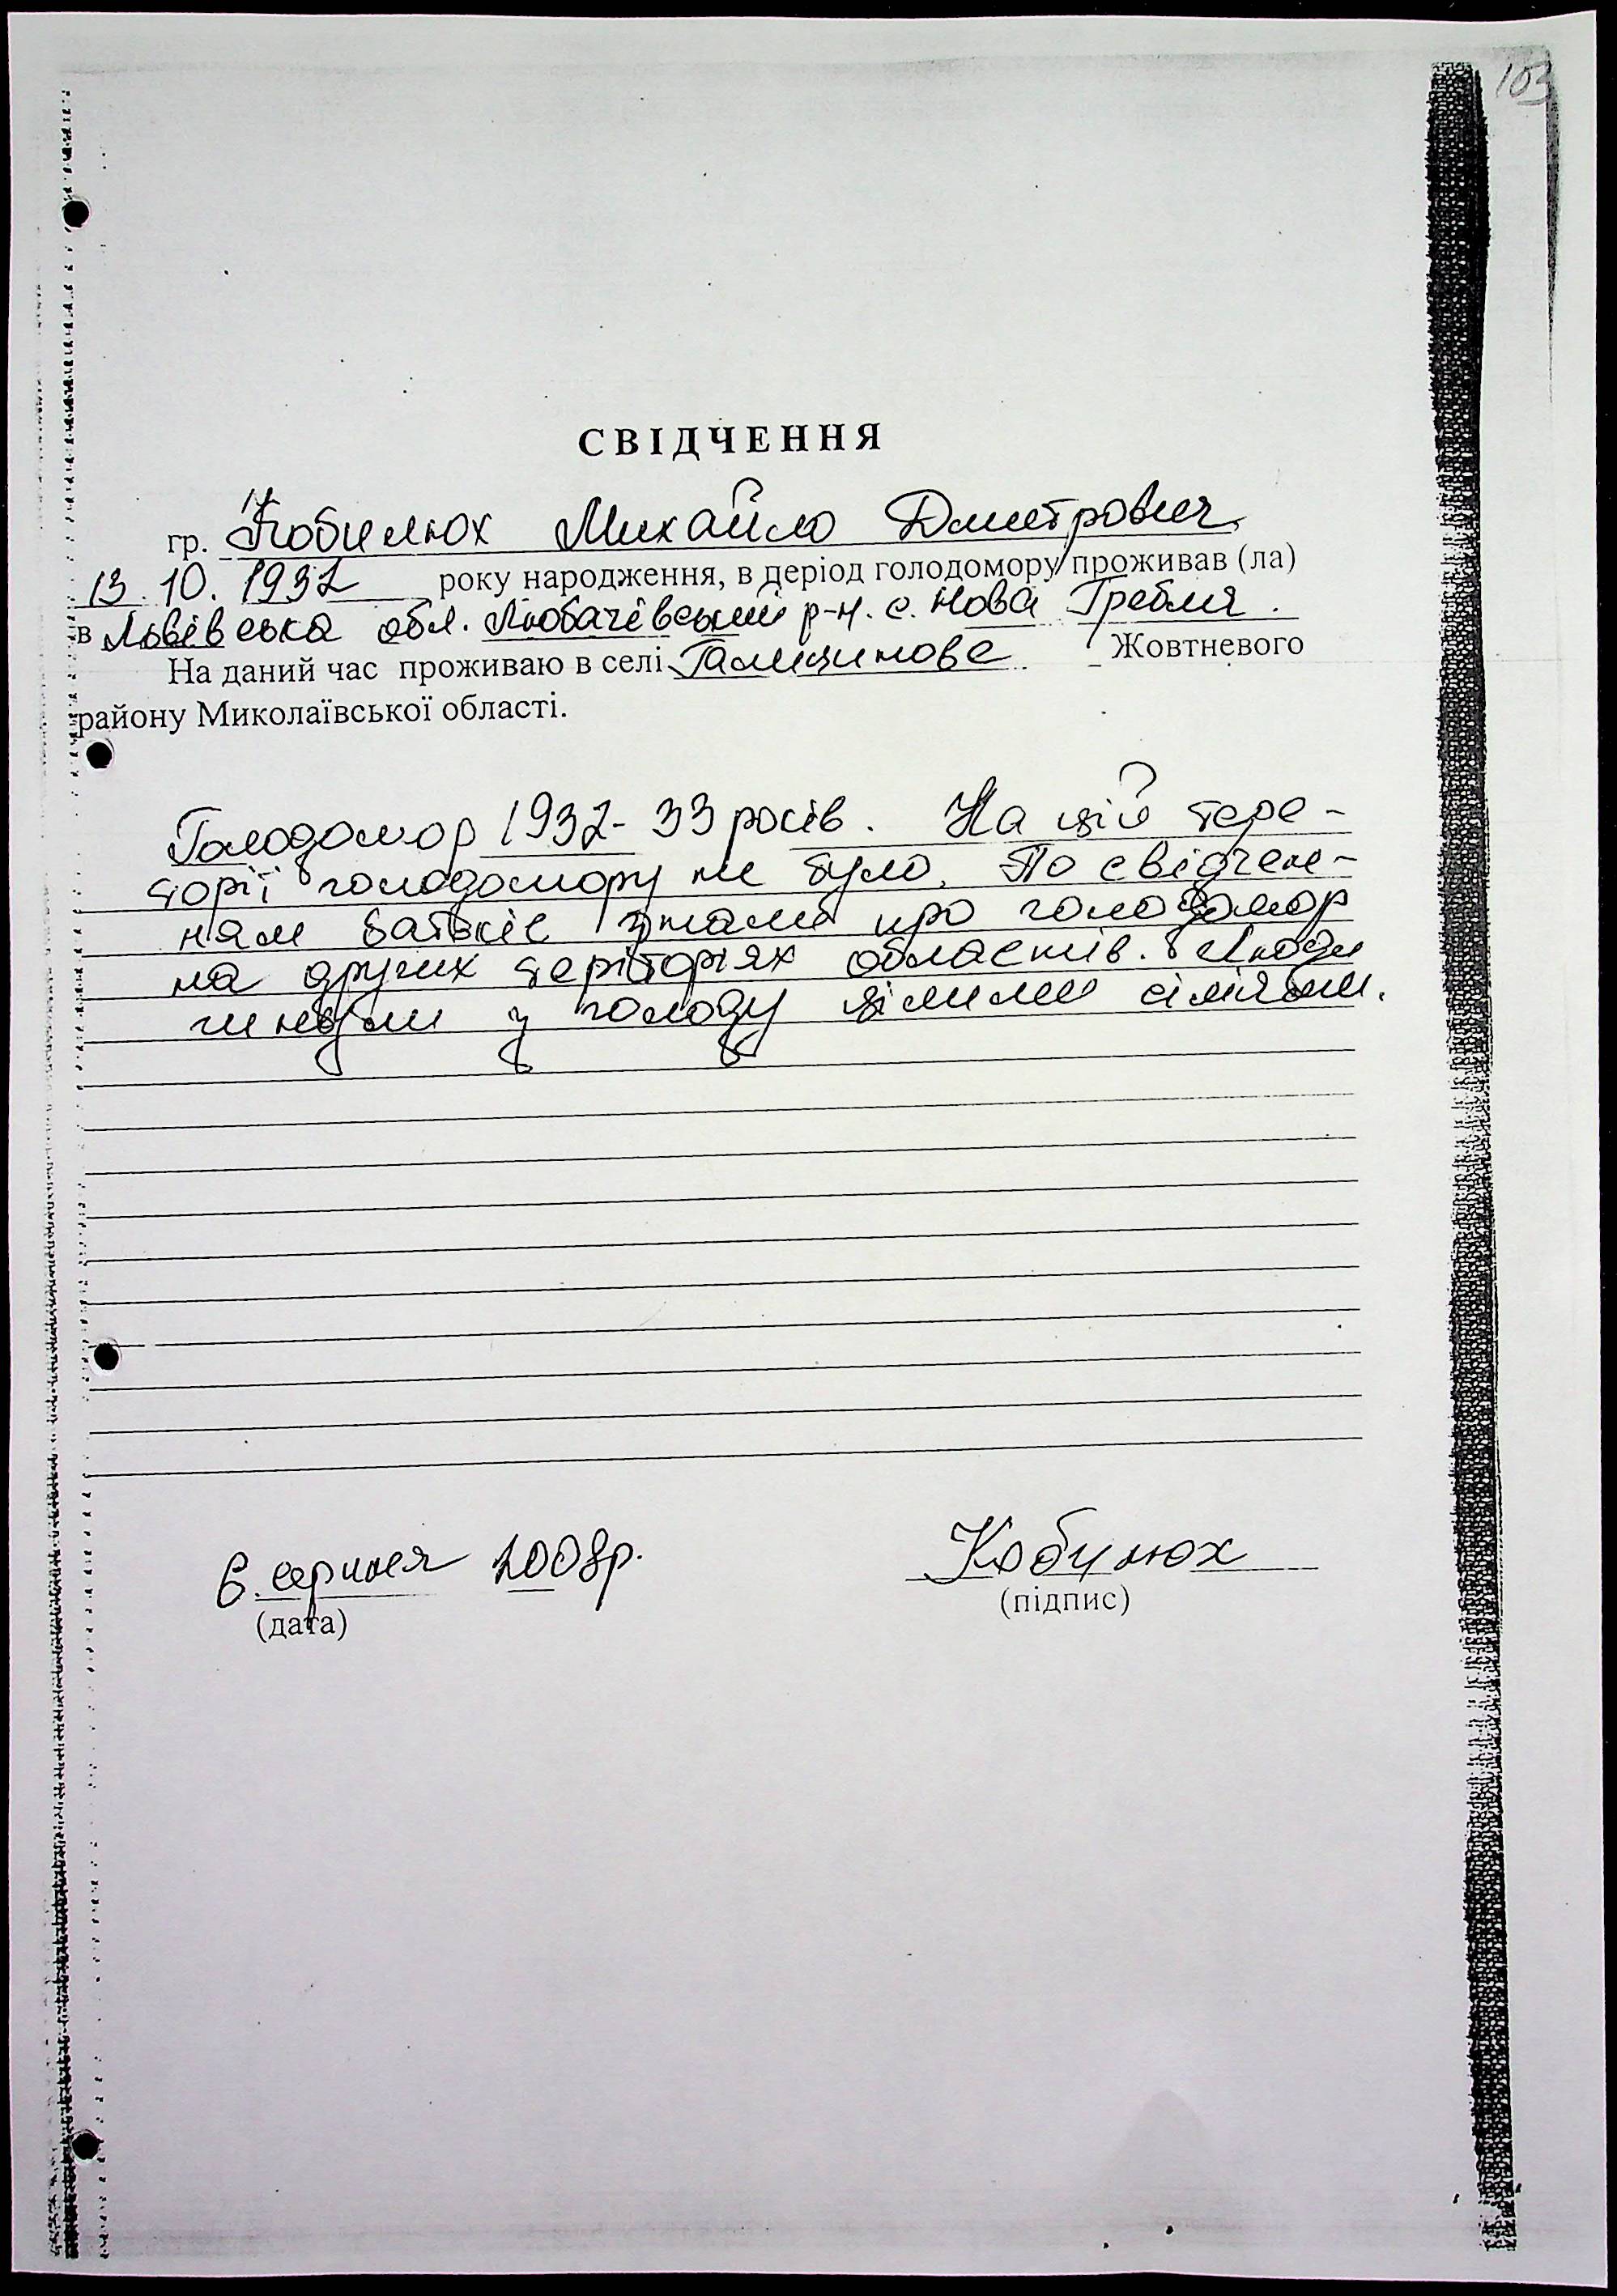 103
СВІДЧЕННЯ
гр. Кобилюх Михайло Дмитрович
13.10.1932 року народження, в період голодомору проживав (ла)
в Львівська обл. Любачівський р-н. с. Нова Гребля.
На даний час проживаю в селі Галицинове Жовтневого
району Миколаївської області.
Голодомор 1932-33 років. На цій тере-
торії голодомору не було. По свідчен-
ням батьків знали про голодомор
на других теріторіях областів. Люди
гинули з голоду цілими сім'ями.
6. серпня 2008р.
(дата)
(підпис)